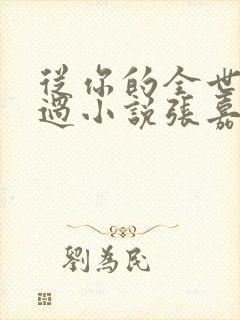 從你的全世
過小說張嘉
劉為民